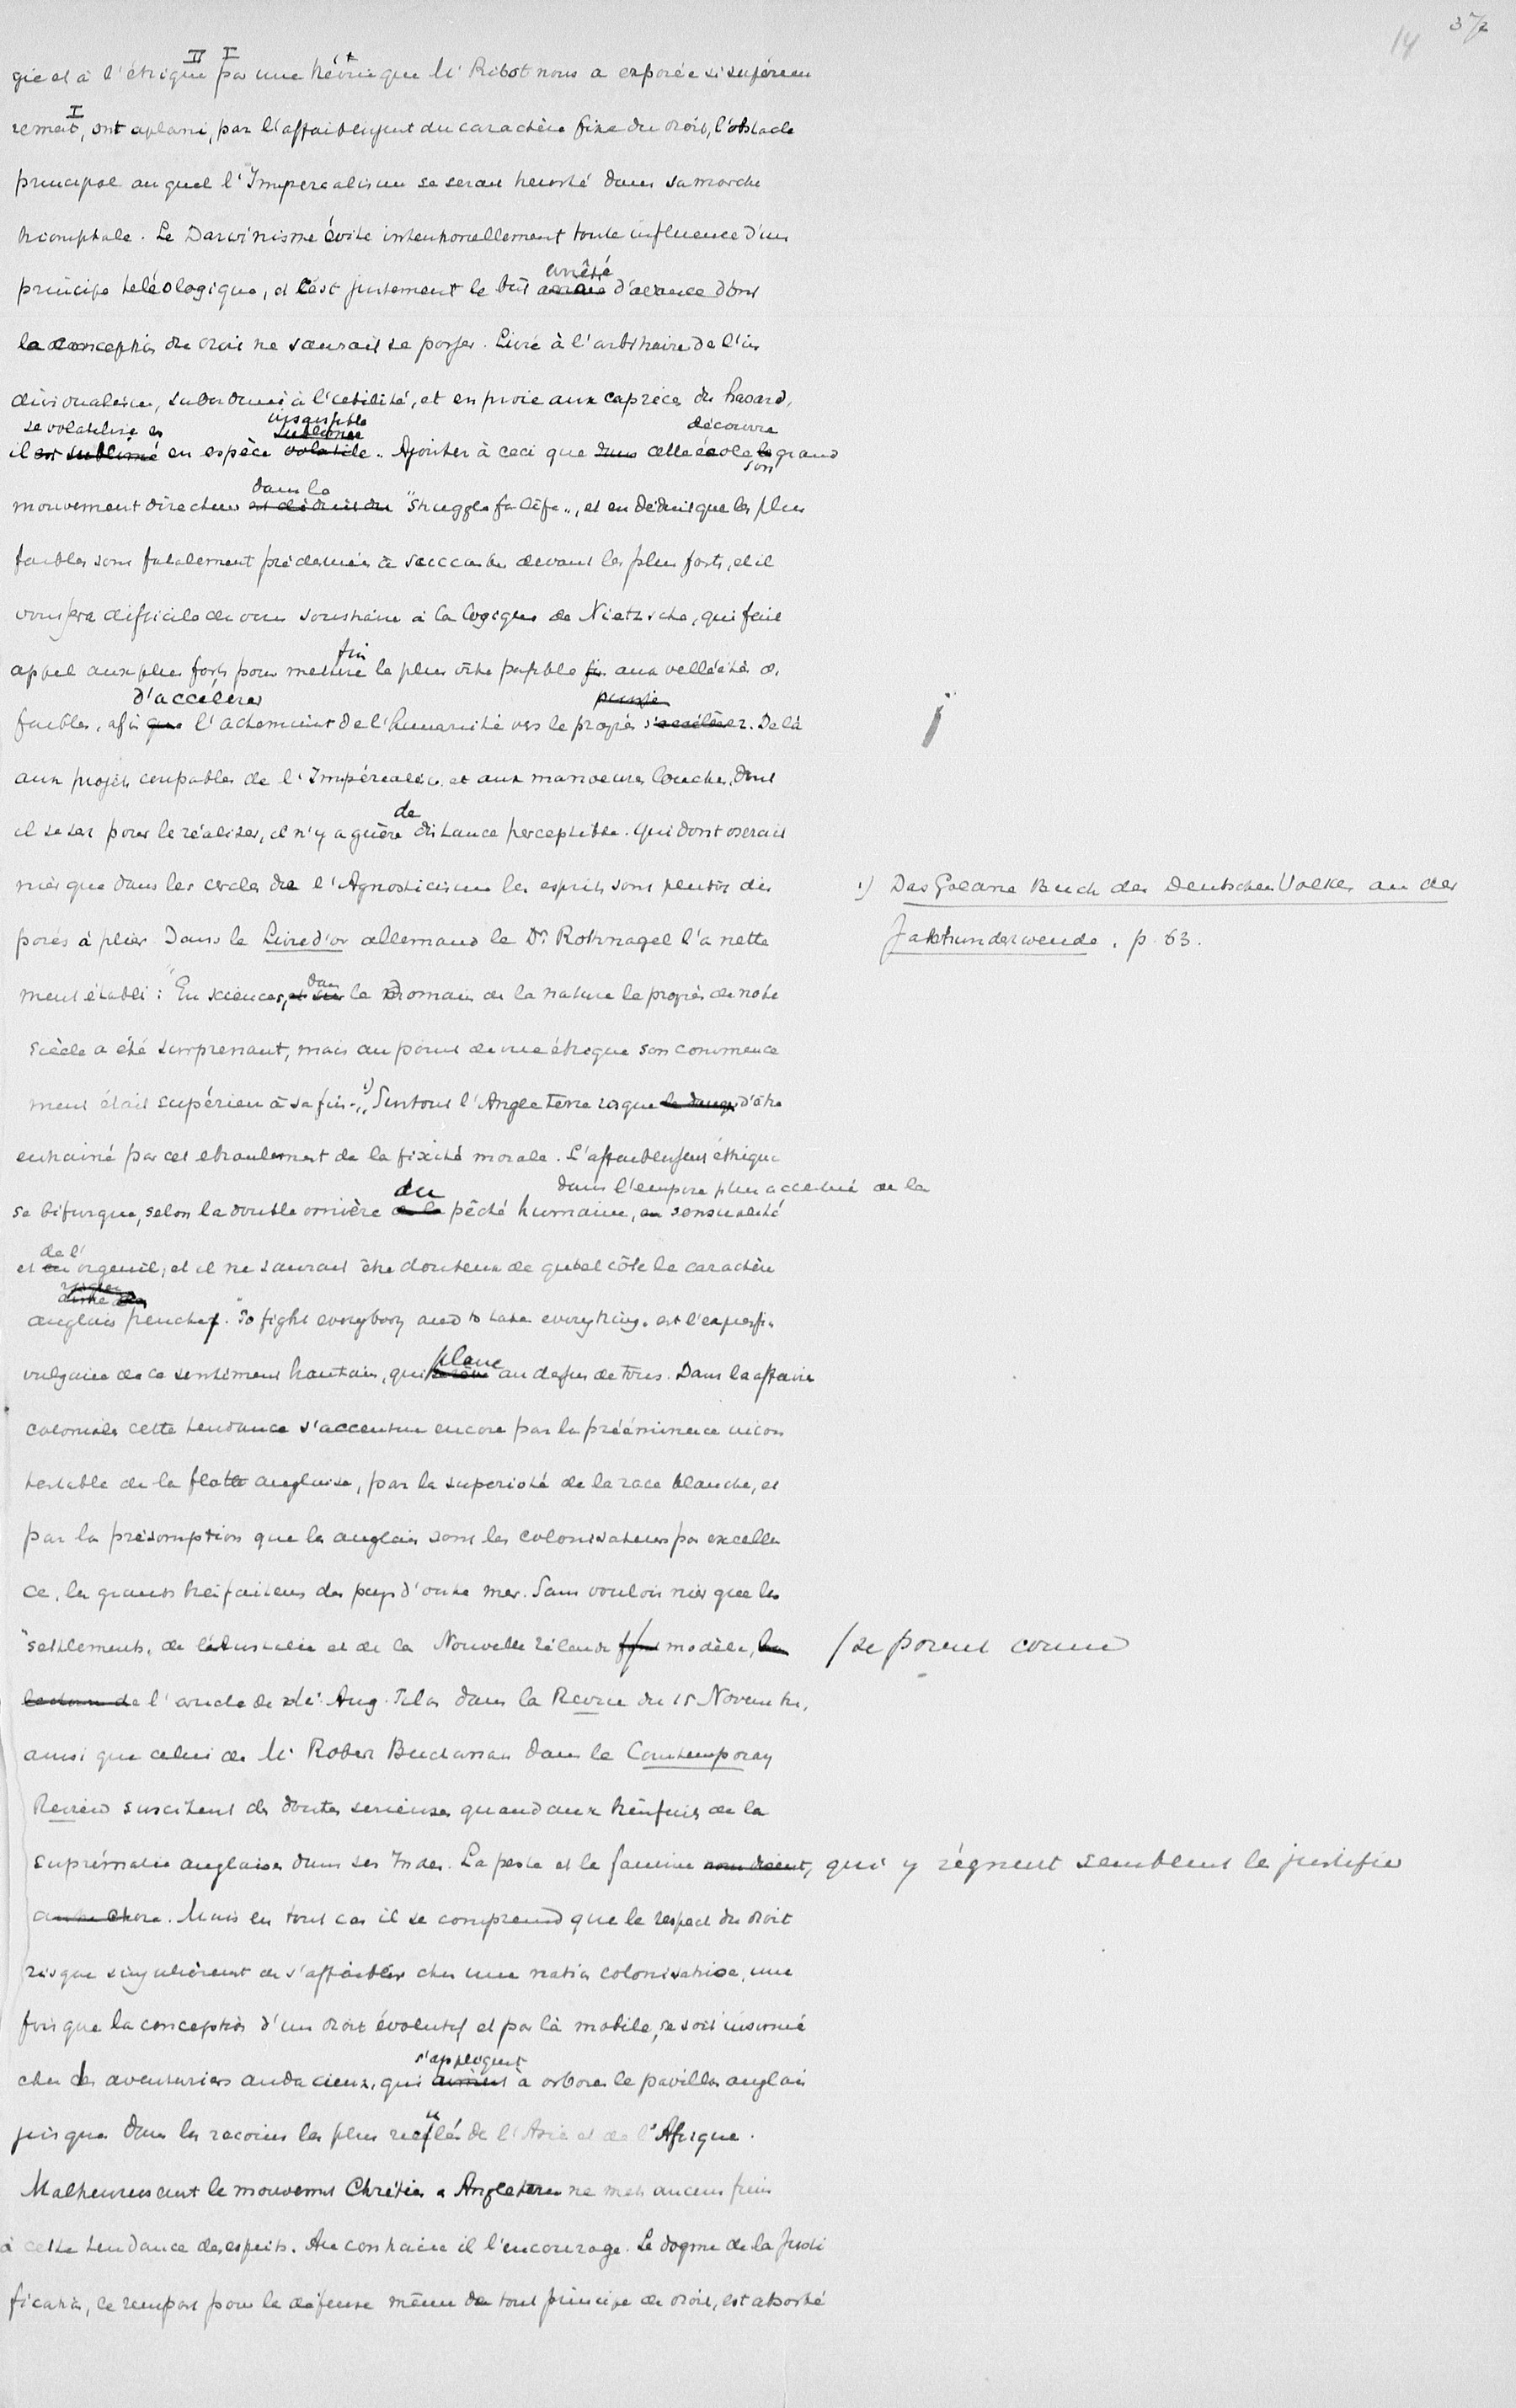 14 37/2
gie et à l'éthique par une théorie que M. Ribot nous a exposée si supérieu
II I
rement, ont aplani, par l'affaiblissement du caractère fixe du droit, l'obstacle
I
principal auquel l'Imperealisme se serait heurté dans sa marche
triomphale. Le Darwinisme évite intentionellement toute influence d'un
principe teléologique, et c'est justement le but d'avance dont
arrêté
la conception du droit ne saurait se passer. Livré à l'arbitraire de l'in
dividualisme, subordonné à l'utilité, et en proie aux caprices du hasard,
se volatilise en insensible découvre
il est sublimé en espèce volatile. Ajouter à ceci que dans cette école le grand
son
dans le
mouvement directeur est déduit du "struggle for life", et en déduit que les plus
faibles sont fatalement prédestinés à succomber devant les plus forts, et il
vous sera difficile de vous soustraire à la logique de Nietzsche, qui fait
fin
appel aux plus forts pour mettre le plus vite possible fin aux velléités de
d'accélérer
faibles, afin que l'acheminent de l'humanité vers le progrès s'accélérer. De là
aux projets coupables de l'Impérealisme et aux manoeuvres louches, dont
de
il se sert pour le réaliser, il n'y a guère distance perceptible. Qui dont oserait
nier que dans les cercles de l'Agnosticisme les esprits sont plutôt dis
posés à plier. Dans le Livre d'or allemand le Dr. Rothnagel l'a nette
1) Das Goldene Buch des Deutschen Volkes an der
Jahrhunderwende, p. 63.
dans
ment établi: "En sciences, et sur le domain de la nature le progrès de notre
siècle a été surprenant, mais au point de vue éthique son commence
ment était supérieur à sa fin." 1) Surtout l'Angleterre risque le danger d'être
entrainé par cet ebranlement de la fixité morale. L'affaiblissement éthique
du dans l'empire plus accentué de la
se bifurque, selon la double ornière de la pêché humaine, en sensualité
de l'
et en orgeuil, et il ne saurait être douteux de quel côté le caractère
anglais penche. "To fight everybody and to take everything" est l'expression
plane
vulgaire de ce sentiment hautain, qui au dessus de tous. Dans les affaires
coloniales cette tendance s'accentue encore par la prééminence incon
testable de la flotte anglaise, par la superioté de la race blanche, et
par la présomption que les anglais sont les colonisateurs par excellen
ce, les grands bienfaiteurs des pays d'outre mer. Sans vouloir nier que les
"settlements" de l'Australie et de la Nouvelle Zélande modèle, les /se posent comme
l'article de M. Aug. Filon dans la Revue du 15 Novembre,
ainsi que celui de M. Robert Buchanan dans le Comtemporary
Review suscitent des doutes serieuses quand aux bienfaits de la
suprématie anglaise dans ses Indes. La peste et la famine nous disent, qui y règnent semblent le justifier
autre chose. Mais en tout cas il se comprend que le respect du droit
risque singulièrement de s'affaiblir chez une nation colonisatrice, une
fois que la conception d'un droit évolutif et par là mobile, se soit insinué
s'appliquent
chez des aventuriers audacieux, qui aiment à arborer le pavillon anglais
jusque dans les recoins les plus reculés de l'Asie et de l'Afrique.
Malheureusement le mouvement Chrétien en Angleterre ne met aucun frein
à cette tendance des esprits. Au contraire il l'encourage. Le dogme de la Justi
fication, ce rempart pour la défense même de tout principe de droit, est absorbé